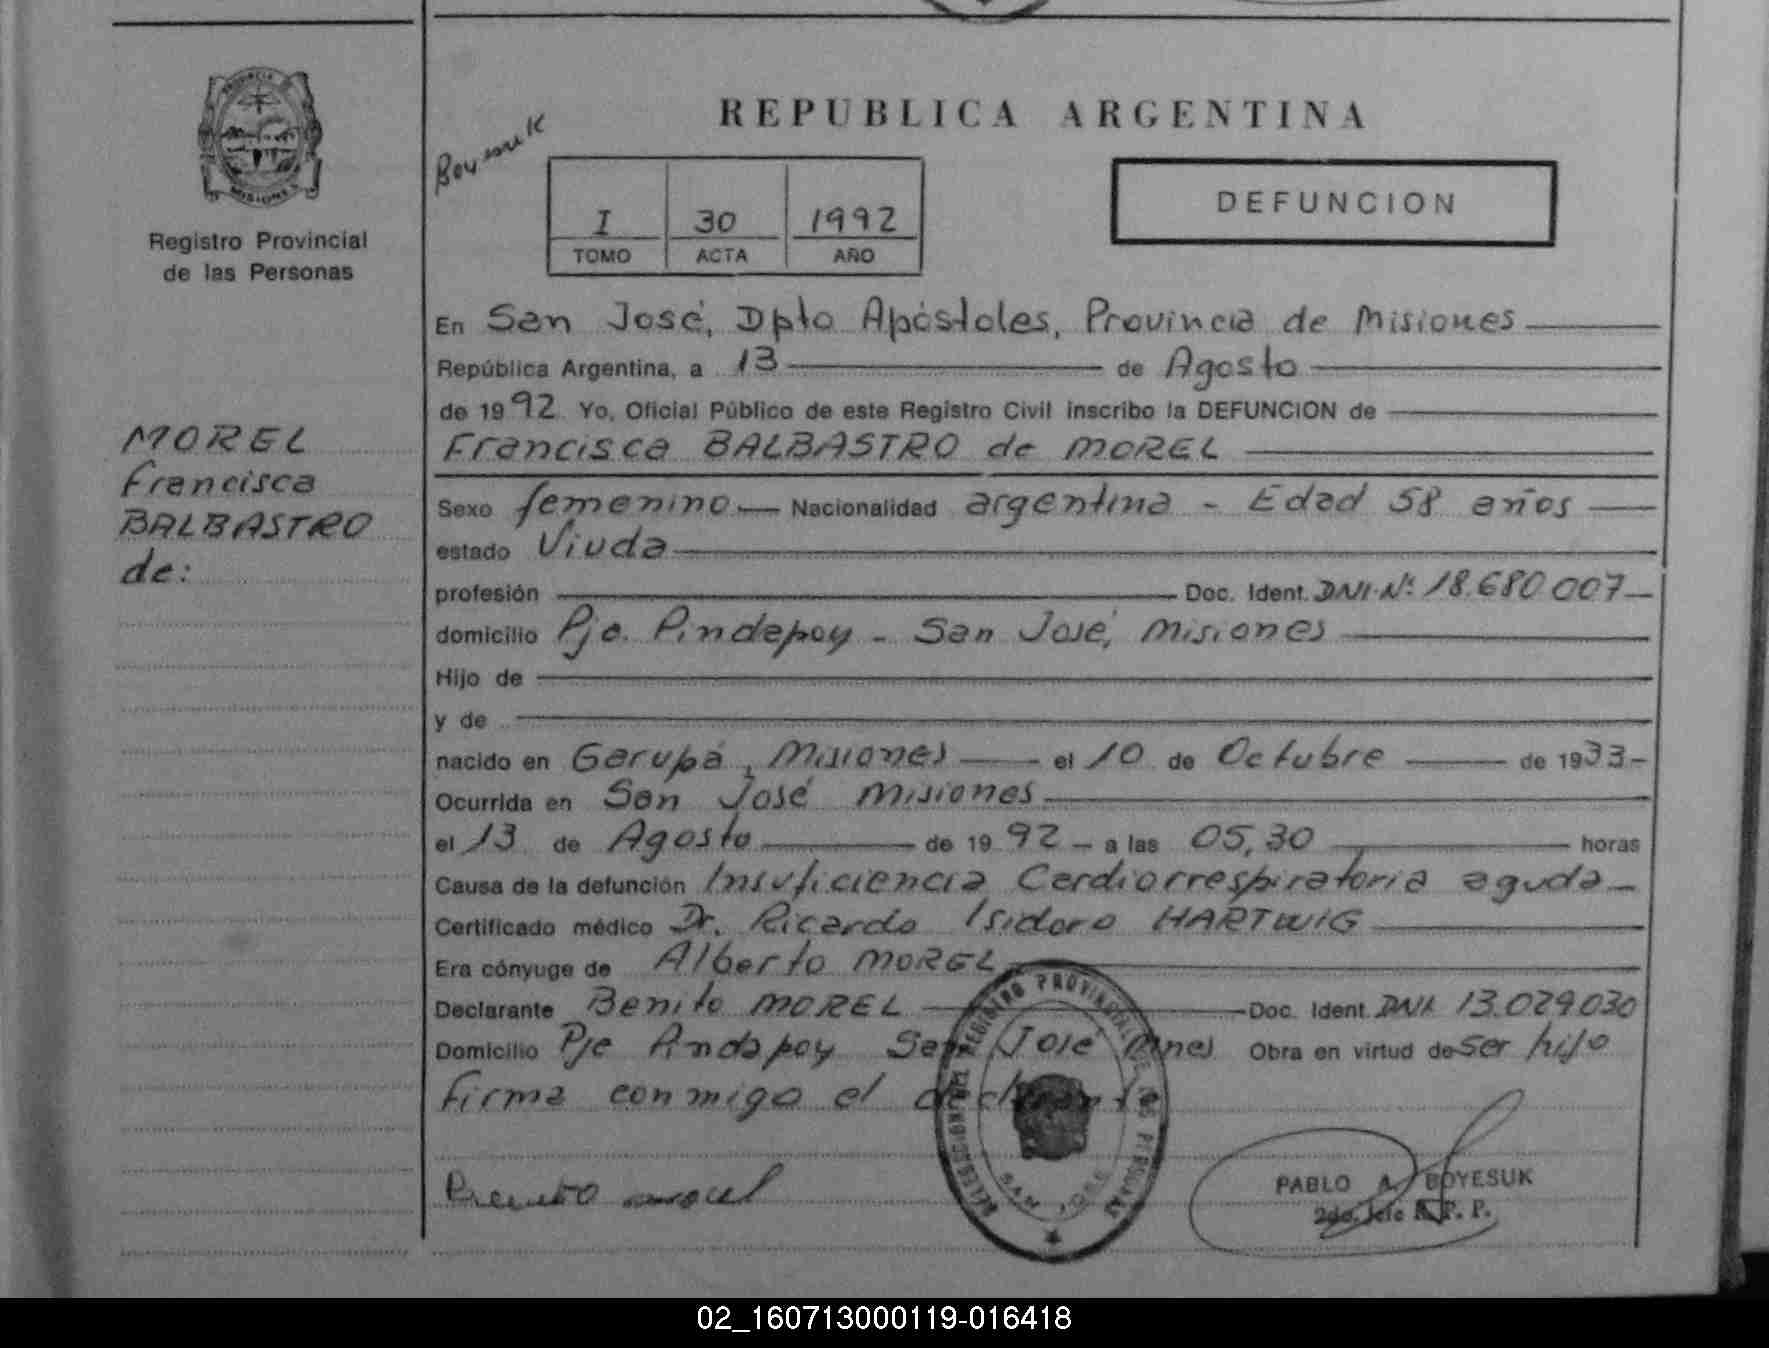 PROVINCIA
MISIONES
Registro Provincial
de las Personas
MOREL
Francisca
BALBASTRO
de:
Boyesuk
REPUBLICA ARGENTINA
I 30 1992
TOMO ACTA AÑO
DEFUNCION
En San José, Dpto Apóstoles, Provincia de Misiones
República Argentina, a 13 de Agosto
de 1992 Yo, Oficial Público de este Registro Civil inscribo la DEFUNCION de
Francisca BALBASTRO de MOREL
Sexo femenino Nacionalidad argentina - Edad 58 años
estado Viuda
profesión Doc. Ident. DNI-Nº 18.680.007
domicilio Pje. Pindapoy - San José, Misiones
Hijo de
y de
nacido en Garupá, Misiones el 10 de Octubre de 1933-
Ocurrida en San José Misiones
el 13 de Agosto de 1992 - a las 05,30 horas
Causa de la defunción Insuficiencia Cardiorrespiratoria aguda
Certificado médico Dr. Ricardo Isidoro HARTWIG
Era cónyuge de Alberto MOREL
Declarante Benito MOREL Doc. Ident. DNI. 13.029.030
Domicilio Pje Pindapoy San José Mnes Obra en virtud de ser hijo
firma conmigo el declarante
DELEGACION DEL REGISTRO PROVINCIAL DE LAS PERSONAS
SAN JOSE
PABLO A. BOYESUK
2do. Jefe R. P. P.
02_160713000119-016418